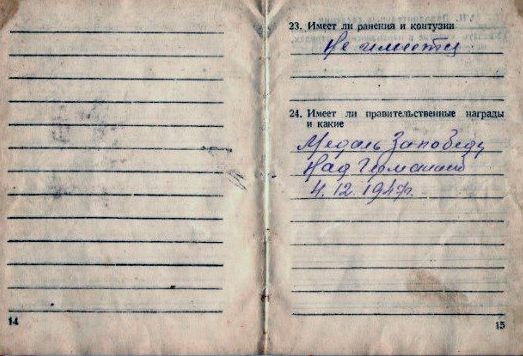 23. Имеет ли ранения и контузии
Не имеет
24. Имеет ли правительственные награды
и какие
Медаль За победу
Над Германией
4. 12. 194
14
15